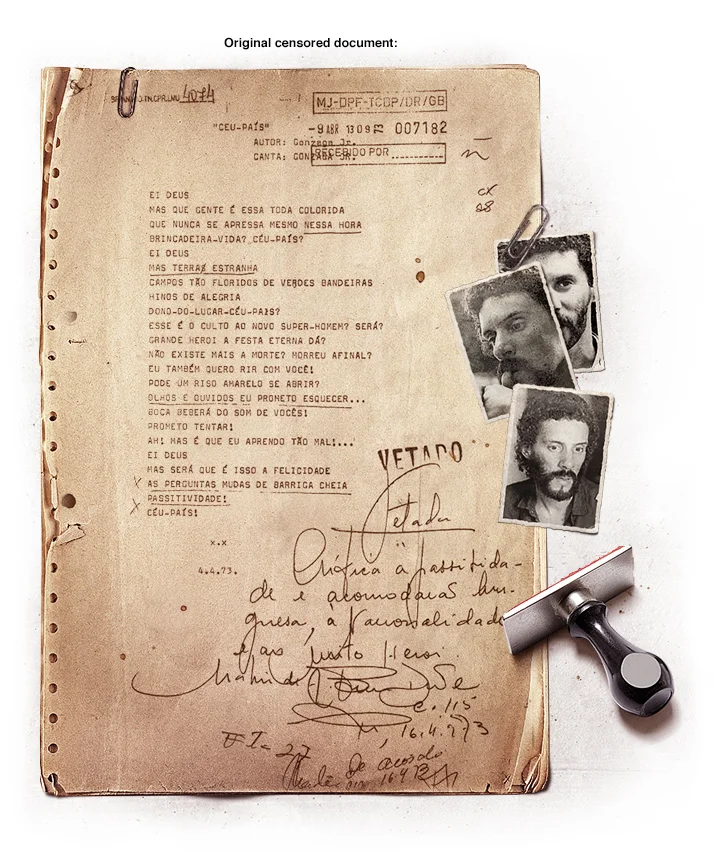 Original censored document:
4074
MJ-DPF-TCDP/DR/GB
"CEU-PAÍS"
-9 ABR 1309 73 007182
AUTOR: Gonzaga Jr.
CANTA: GONZAGA JR.
RECEBIDO POR
EI DEUS
MAS QUE GENTE É ESSA TODA COLORIDA
QUE NUNCA SE APRESSA MESMO NESSA HORA
BRINCADEIRA-VIDA? CÉU-PAÍS?
EI DEUS
MAS TERRAS ESTRANHA
CAMPOS TÃO FLORIDOS DE VERDES BANDEIRAS
HINOS DE ALEGRIA
DONO-DO-LUGAR-CÉU-PAIS?
ESSE É O CULTO AO NOVO SUPER-HOMEM? SERÁ?
GRANDE HEROI A FESTA ETERNA DÁ?
NÃO EXISTE MAIS A MORTE? MORREU AFINAL?
EU TAMBÉM QUERO RIR COM VOCÊ!
PODE UM RISO AMARELO SE ABRIR?
OLHOS E OUVIDOS EU PROMETO ESQUECER...
BOCA BEBERÁ DO SOM DE VOCÊS!
PROMETO TENTAR!
AH! MAS É QUE EU APRENDO TÃO MAL!...
EI DEUS
MAS SERÁ QUE É ISSO A FELICIDADE
X AS PERGUNTAS MUDAS DE BARRIGA CHEIA
X PASSITIVIDADE!
CÉU-PAÍS!
VETADO
Vetado
x.x
4.4.73.
Crítica à passitida-
de e acomodação bur-
guesa, à nacionalidade
e ao muito Heroi.
C. 115
16.4.973
De acordo
16 4 73